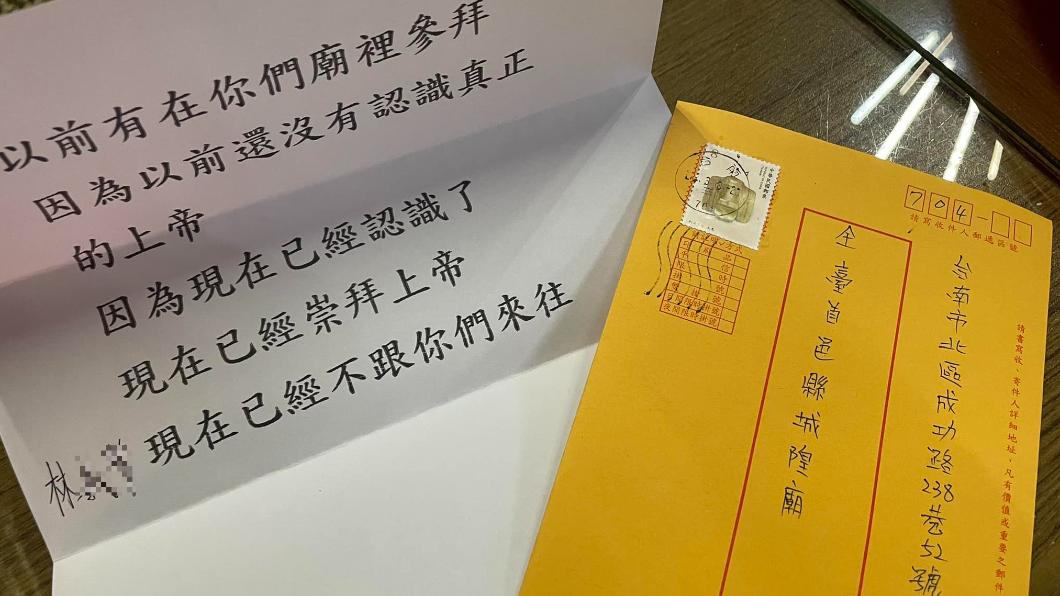 以前有在你們廟裡參拜
因為以前還沒有認識真正
的上帝
因為現在已經認識了
現在已經崇拜上帝
現在已經不跟你們來往
林
中華民國郵票
704
請寫收件人郵遞區號
台南市北區成功路238巷52號
全臺首邑縣城隍廟
請書寫收、寄件人詳細地址，凡有價值或重要之郵件